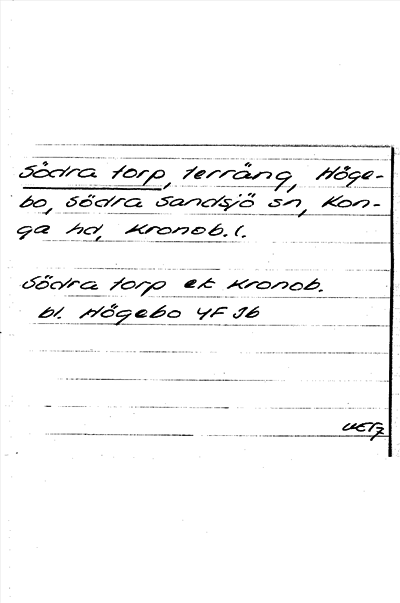 Södra torp, terräng, Höge-
bo, Södra Sandsjö sn, Kon-
ga hd, Kronob. l.
Södra torp ek Kronob.
bl. Högebo 4F Jb